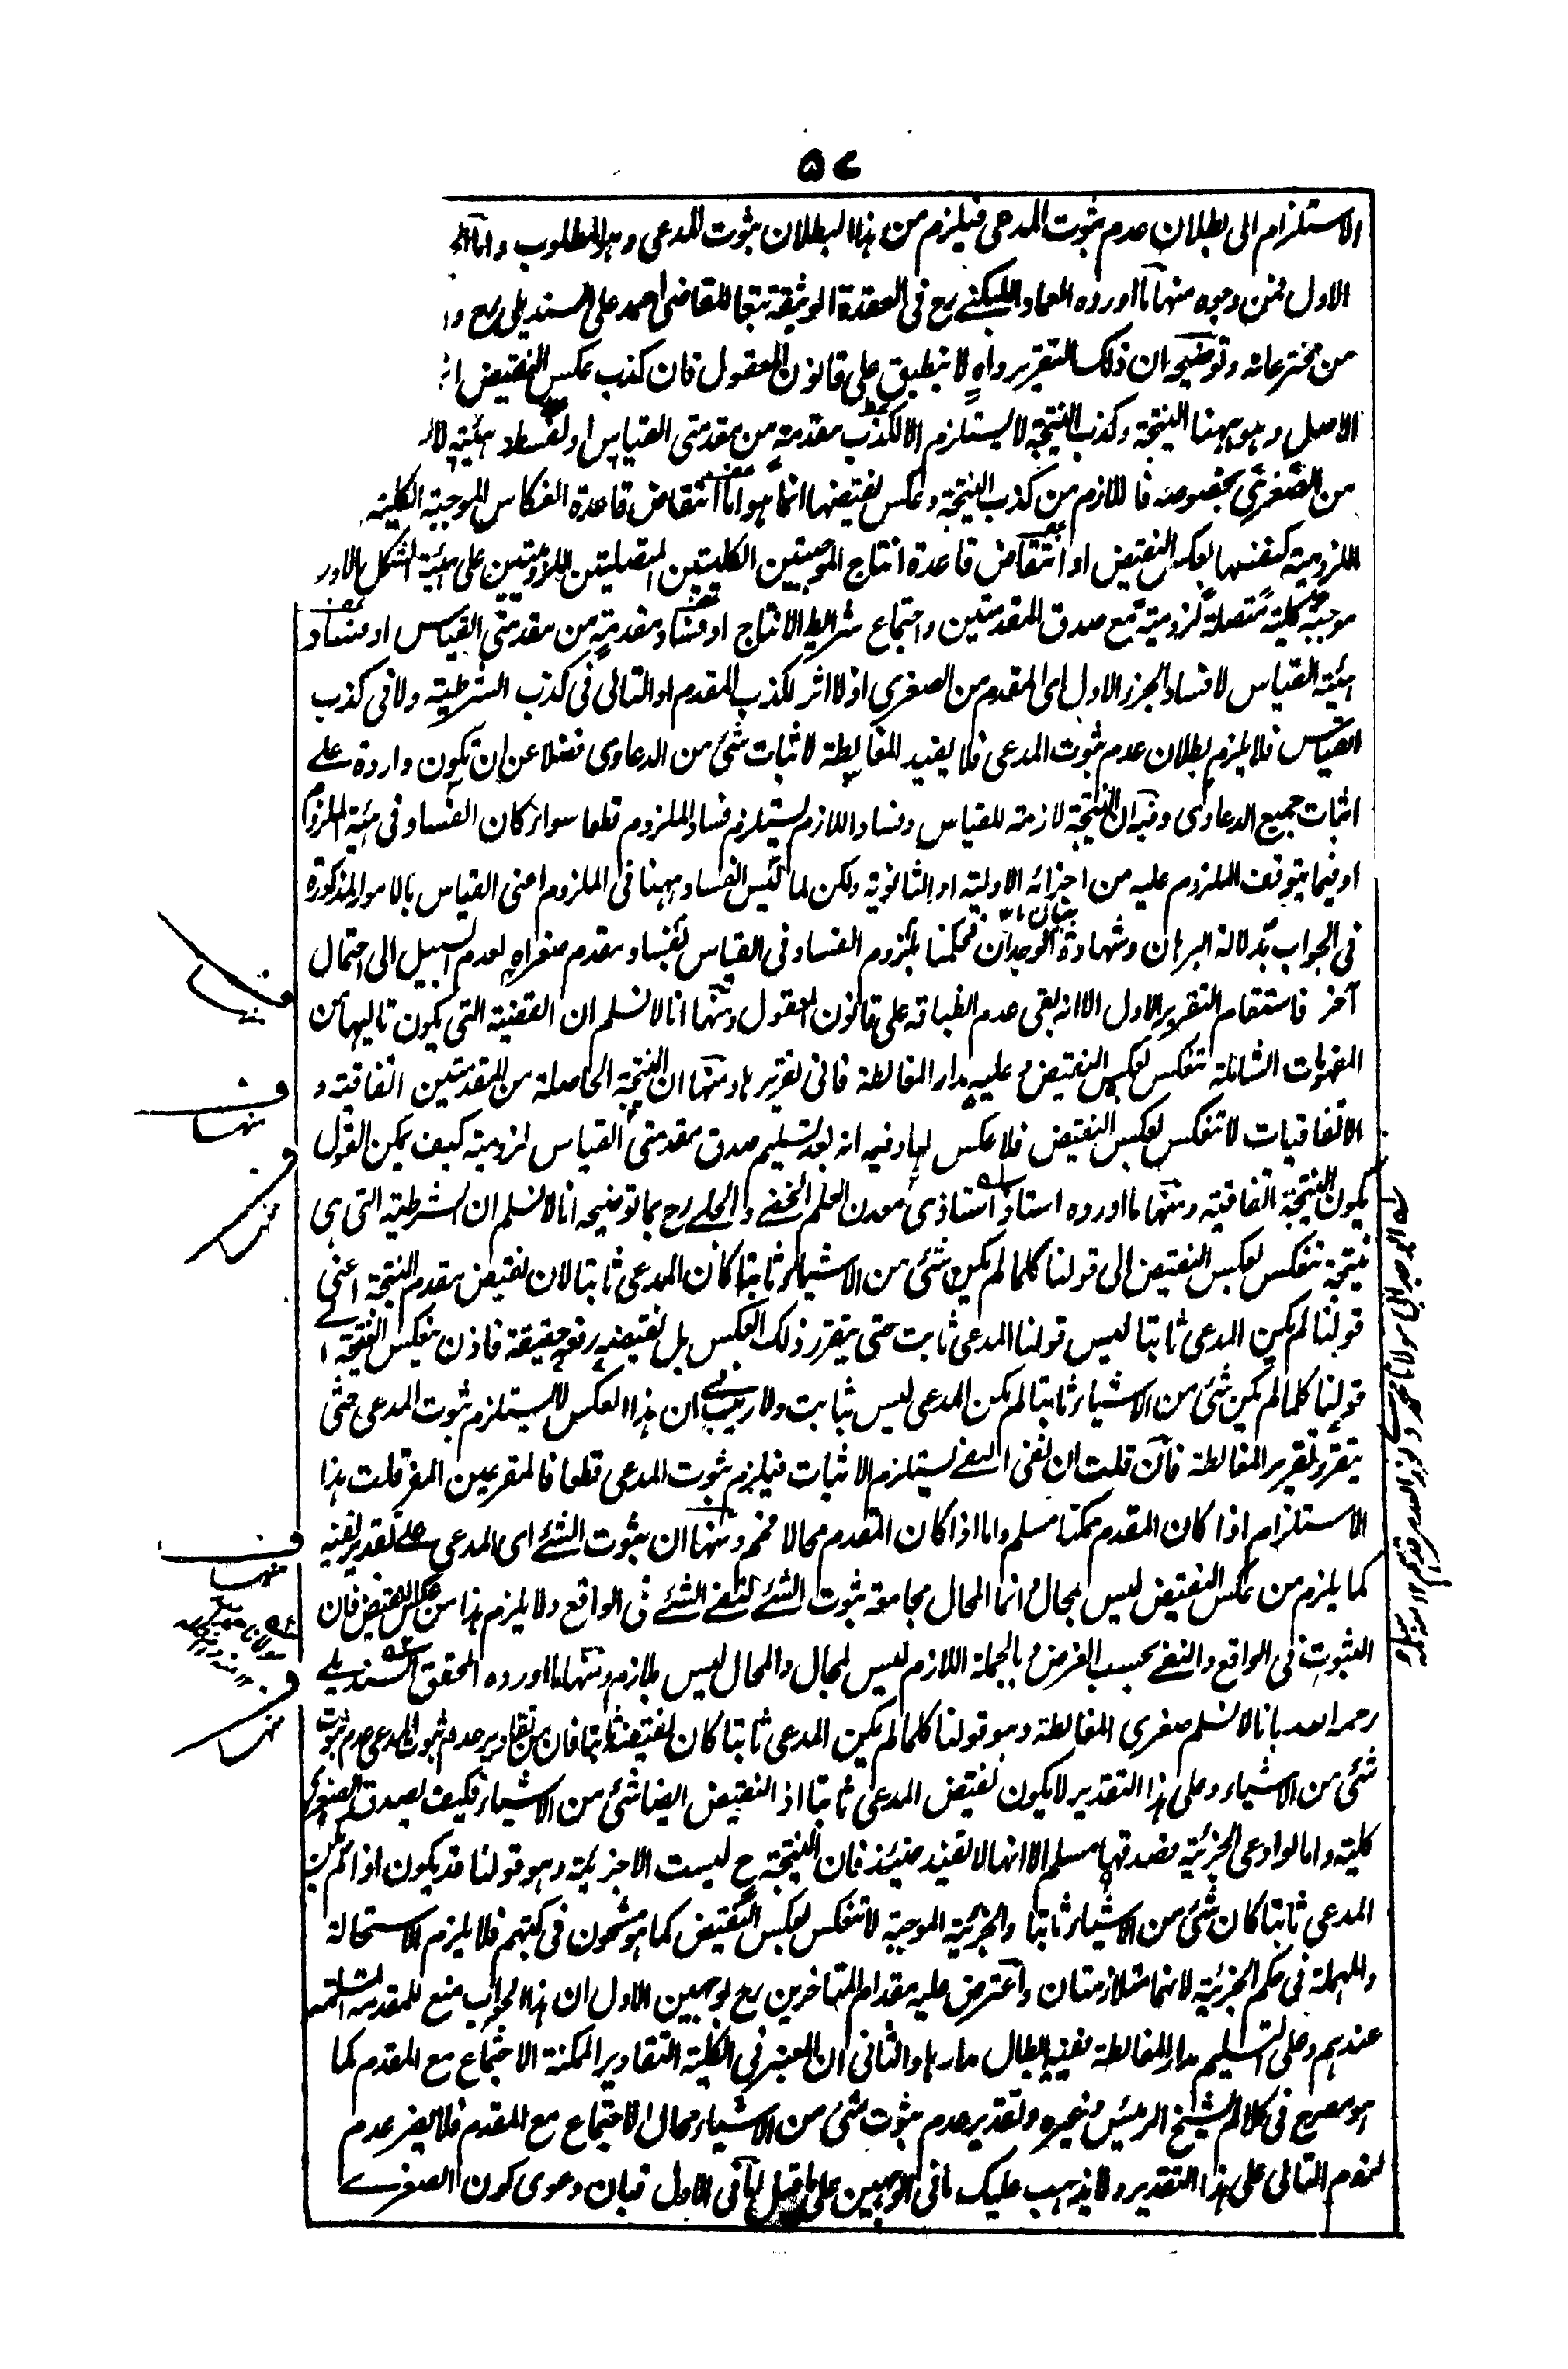 ٥٧
الاستلزام الى بطلان عدم ثبوت المدعى فيلزم من هذا البطلان ثبوت المدعى وهو المطلوب واما
الاول فمن وجوه منها ما اورده العماد اللبكنى رح فى العقدة الوثيقة تبعا للقاضى احمد على السنديلى رح
من مخترعاته وتوضيحه ان ذلك التقرير واهٍ لا ينطبق على قانون المعقول فان كذب عكس النقيض
الاصل وهو ههنا النتيجة وكذب النتيجة لا يستلزم الا لكذب مقدمة من مقدمتى القياس او لفساد هيئته
من الصغرى بخصوصه فاللازم من كذب النتيجة وعكس نقيضها انما هو اما انتقاض قاعدة انعكاس الموجبة الكلية
اللزومية كنفسها بعكس النقيض او انتقاض قاعدة انتاج الموجبتين الكليتين المتصلتين اللزوميتين على هيئة الشكل الاول
موجبة كلية متصلة لزومية مع صدق المقدمتين واجتماع شرائط الانتاج او فساد مقدمة من مقدمتى القياس او فساد
هيئة القياس لا فساد الجزء الاول اى المقدم من الصغرى اذ لا اثر لكذب المقدم او التالى فى كذب الشرطية ولا فى كذب
القياس فلا يلزم بطلان عدم ثبوت المدعى فلا يفيد المغالطة لاثبات شئ من الدعاوى فضلا عن ان تكون واردة على
اثبات جميع الدعاوى وفيه ان النتيجة لازمة للقياس وفساد اللازم يستلزم فساد الملزوم قطعا سواء كان الفساد فى هيئة الملزوم
او فيما يتوقف الملزوم عليه من اجزائه الاولية او الثانوية ولكن لما ليس الفساد ههنا فى الملزوم اعنى القياس بالامور المذكورة
فى الجواب بدلالة البرهان وشهادة الوجدان فحكمنا بلزوم الفساد فى القياس بفساد مقدم صغراه لعدم السبيل الى احتمال
آخر فاستقام التقرير الاول الا انه بقى عدم انطباقه على قانون المعقول ومنها انا لا نسلم ان القضية التى يكون تاليها من
المفهومات الشاملة تنعكس بعكس النقيض وعليه مدار المغالطة فانى تقريرها ومنها ان النتيجة الحاصلة من المقدمتين اتفاقية و
الاتفاقيات لا تنعكس بعكس النقيض فلا عكس لها وفيه انه بعد تسليم صدق مقدمتى القياس لزومية كيف يمكن القول
بكون النتيجة اتفاقية ومنها ما اورده استاذ استاذى معدن العلم الخفى والجلى رح بما توضيحه انا لا نسلم ان الشرطية التى هى
نتيجة تنعكس بعكس النقيض الى قولنا كلما لم يكن شئ من الاشياء ثابتا كان المدعى ثابتا لان نقيض مقدم النتيجة اعنى
قولنا لم يكن المدعى ثابتا ليس قولنا المدعى ثابت حتى يتقرر ذلك العكس بل نقيضه رفعه حقيقة فاذن ينعكس النتيجة
قولنا كلما لم يكن شئ من الاشياء ثابتا لم يكن المدعى ليس بثابت ولا ريب فى ان هذا العكس لا يستلزم ثبوت المدعى حتى
يتقرر تقرير المغالطة فان قلت ان نفى النفى يستلزم الاثبات فيلزم ثبوت المدعى قطعا فالمفر عين المفر قلت هذا
الاستلزام اذا كان المقدم ممكنا مسلم واما اذا كان المقدم محالا فمم ومنها ان ثبوت الشئ اى المدعى على تقدير نفيه
كما يلزم من عكس النقيض ليس بمحال انما المحال مجامعة ثبوت الشئ لنفى الشئ فى الواقع ولا يلزم هذا من عكس النقيض فان
الثبوت فى الواقع والنفى بحسب الفرض وبالجملة اللازم ليس بمحال والمحال ليس بلازم ومنها ما اورده المحقق السنديلى
رحمه الله بانا لا نسلم صغرى المغالطة وهو قولنا كلما لم يكن المدعى ثابتا كان نقيضه ثابتا فان من تقادير عدم ثبوت المدعى عدم ثبوت
شئ من الاشياء وعلى هذا التقدير لا يكون نقيض المدعى ثابتا اذ النقيض ايضا شئ من الاشياء فكيف يصدق الصغرى
كلية واما لو ادعى الجزئية فصدقها مسلم الا انها لا تفيد حينئذ فان النتيجة ح ليست الا جزئية وهو قولنا قد يكون اذا لم يكن
المدعى ثابتا كان شئ من الاشياء ثابتا والجزئية الموجبة لا تنعكس بعكس النقيض كما هو مشحون فى كتبهم فلا يلزم الاستحالة
والمهملة فى حكم الجزئية لانهما متلازمتان واعترض عليه مقدام المتاخرين رح بوجهين الاول ان هذا الجواب منع للمقدمة المسلمة
عندهم وعلى التسليم مدار المغالطة نفيه ابطال مدارها والثانى ان المعتبر فى الكلية التقادير الممكنة الاجتماع مع المقدم كما
هو مصرح فى كلام الشيخ الرئيس وغيره وتقدير عدم ثبوت شئ من الاشياء محال الاجتماع مع المقدم فلا يضر عدم
لزوم التالى على هذا التقدير ولا يذهب عليك ما فى الوجهين على ما قيل اما فى الاول فبان دعوى كون الصغرى
ف
منها
ف
منها
ف
منها
ف
منها
ف
منها